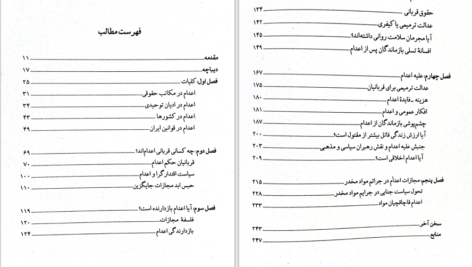 فهرست مطالب
مقدمه ۱۱
دیباچه ۱۷
فصل اول، کلیات ۲۵
اعدام در مکاتب حقوقی ۳۱
اعدام در ادیان توحیدی ۳۴
اعدام در کشورها ۴۳
اعدام در قوانین ایران ۴۹
فصل دوم، چه کسانی قربانی اعدام‌اند؟ ۶۹
قربانیان حکم اعدام ۷۰
سیاست اقتدارگرا و اعدام ۱۰۰
حبس ابد مجازات جایگزین ۱۱۰
فصل سوم، آیا اعدام بازدارنده است؟ ۱۱۹
فلسفهٔ مجازات ۱۲۰
بازدارندگی اعدام ۱۲۴
حقوق قربانی ۱۳۴
عدالت ترمیمی یا کیفری ۱۴۲
آیا مجرمان سلامت روانی داشته‌اند؟ ۱۴۵
افسانهٔ تسلی بازماندگان پس از اعدام ۱۴۹
فصل چهارم، علیه اعدام ۱۶۷
عدالت ترمیمی برای قربانیان ۱۷۵
هزینه ـ فایدهٔ اعدام ۱۸۰
افکار عمومی و اعدام ۱۸۱
چشم‌پوشی بازماندگان از اعدام ۱۸۷
آیا ارزش زندگی قاتل بیشتر از مقتول است؟ ۲۰۰
جنبش علیه اعدام و نقش رهبران سیاسی و مذهبی ۲۰۳
آیا اعدام اخلاقی است؟ ۲۰۹
فصل پنجم، مجازات اعدام در جرائم مواد مخدر ۲۱۵
تحول سیاست جنایی در جرایم مواد مخدر ۲۲۸
اعدام قاچاقچیان مواد ۲۳۳
سخن آخر ۲۴۳
منابع ۲۴۷